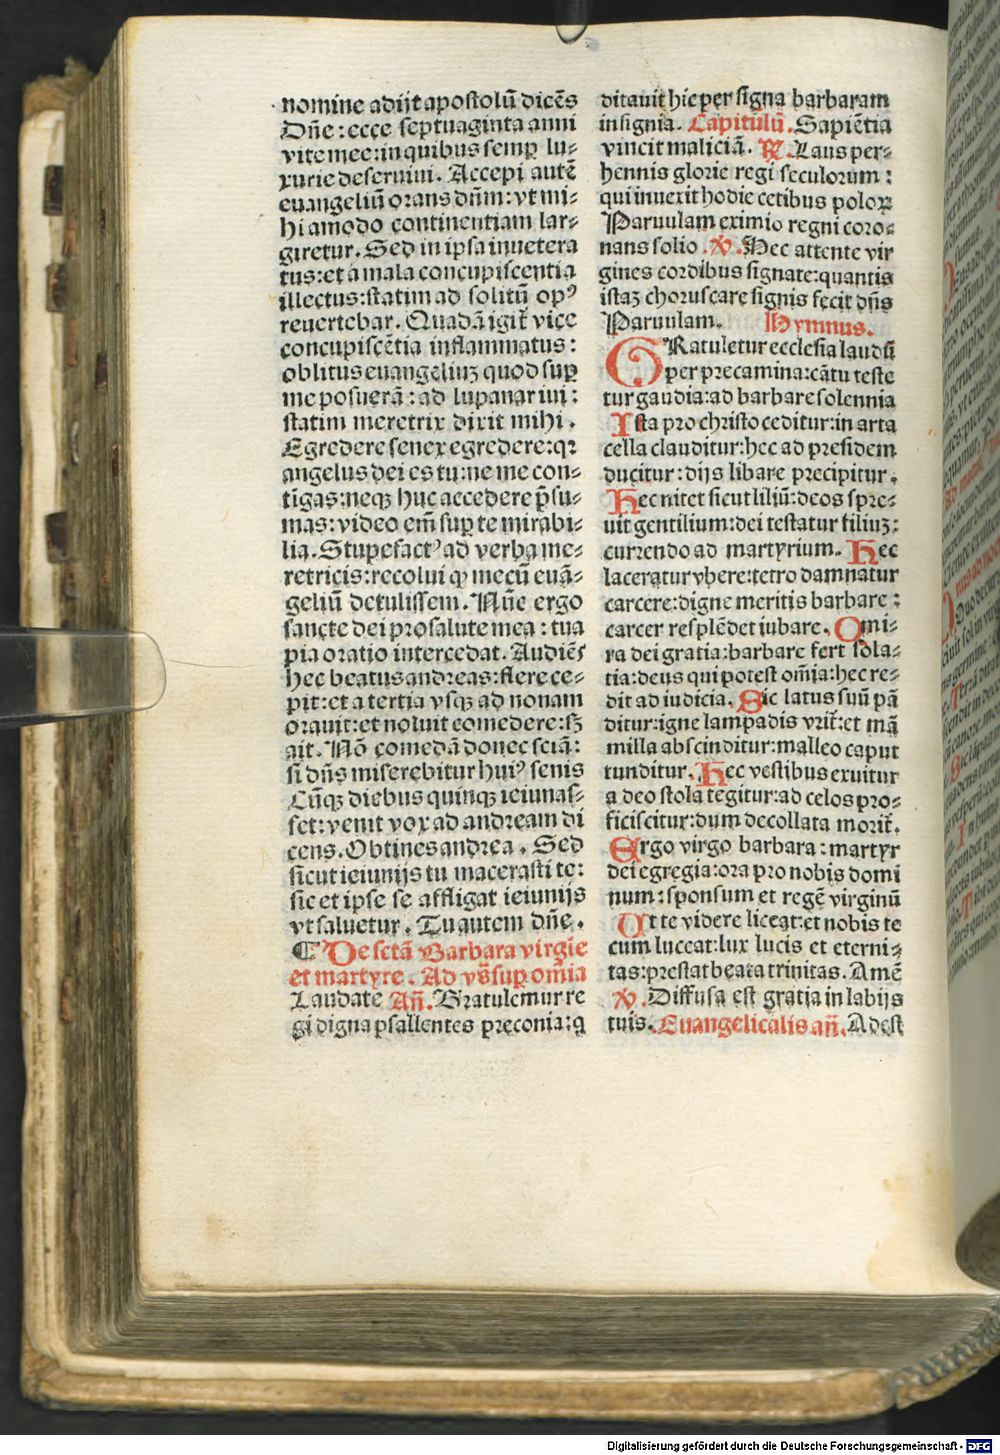 nomine adijt apostolū dicēs
Dñe: ecce septuaginta anni
vite mee: in quibus semꝑ lu⸗
xurie deserviui. Accepi autē
euangeliū orans dñm: vt mi⸗
hi amodo continentiam lar⸗
giretur. Sed in ipsa inuetera
tus: et a mala concupiscentia
illectus: statim ad solitū opꝰ
reuertebar. Quadā igit̄ vice
concupiscētia inflammatus:
oblitus euangeliuꝫ quod suꝑ
me posuerā: ad lupanar iui:
statim meretrix dixit mihi.
Egredere senex egredere: qꝛ
angelus dei es tu: ne me con⸗
tigas: neqꝫ huc accedere p̄su⸗
mas: video em̄ suꝑ te mirabi⸗
lia. Stupefactꝰ ad verba me⸗
retricis: recolui ꝙ mecū euā⸗
geliū detulissem. Nūc ergo
sancte dei pro salute mea: tua
pia oratio intercedat. Audiēs
hec beatus andreas: flere ce⸗
pit: et a tertia vsqꝫ ad nonam
orauit: et noluit comedere: sꝫ
ait. Nō comedā donec sciā:
si dñs miserebitur huiꝰ senis
Cūqꝫ diebus quinqꝫ ieiunas⸗
set: venit vox ad andream di
cens. Obtines andrea. Sed
sicut ieiunijs tu macerasti te:
sic et ipse se affligat ieiunijs
vt saluetur. Tu autem dñe.
¶ De sctā Barbara virgie
et martyre. Ad vr̄s suꝑ om̄ia
Laudate Añ. Gratulemur re
gi digna psallentes preconia: q
ditauit hic per signa barbaram
insignia. Capitulū. Sapiētia
vincit maliciā. ℟. Laus per⸗
hennis glorie regi seculorum:
qui inuexit hodie cetibus poloꝝ
Paruulam eximio regni coro⸗
nans solio. ℣. Hec attente vir
gines cordibus signate: quantis
istaꝫ choruscare signis fecit dñs
Paruulam. Hymnus.
GRatuletur ecclesia laudū
per precamina: cātu teste
tur gaudia: ad barbare solennia
Ista pro christo ceditur: in arta
cella clauditur: hec ad presidem
ducitur: dijs libare precipitur.
Hec nitet sicut liliū: deos spre⸗
uit gentilium: dei testatur filiuꝫ:
currendo ad martyrium. Hec
laceratur vbere: tetro damnatur
carcere: digne meritis barbare:
carcer resplēdet iubare. O mi⸗
ra dei gratia: barbare fert sola⸗
tia: deus qui potest om̄ia: hec re⸗
dit ad iudicia. Sic latus suū pā
ditur: igne lampadis vrit̄: et mā
milla abscinditur: malleo caput
tunditur. Hec vestibus exuitur
a deo stola tegitur: ad celos pro⸗
ficiscitur: dum decollata morit̄.
Ergo virgo barbara: martyr
dei egregia: ora pro nobis domi
num: sponsum et regē virginū
Ut te videre liceat: et nobis te
cum luceat: lux lucis et eterni⸗
tas: prestat beata trinitas. Amē
℣. Diffusa est gratia in labijs
tuis. Euangelicalis añ. Adest
Digitalisierung gefördert durch die Deutsche Forschungsgemeinschaft - DFG